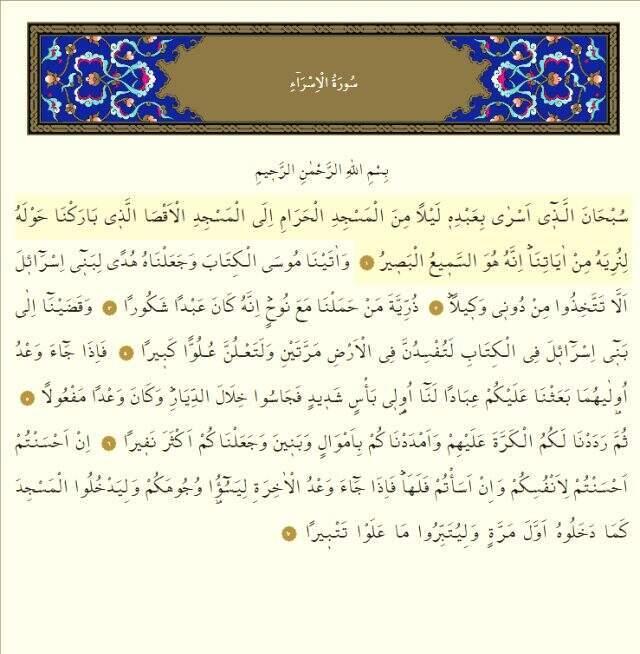 سُورَةُ الْاِسْرَٓاءِ
بِسْمِ اللهِ الرَّحْمٰنِ الرَّحٖيمِ
سُبْحَانَ الَّذٖٓى اَسْرٰى بِعَبْدِهٖ لَيْلًا مِنَ الْمَسْجِدِ الْحَرَامِ اِلَى الْمَسْجِدِ الْاَقْصَا الَّذٖى بَارَكْنَا حَوْلَهُ
لِنُرِيَهُ مِنْ اٰيَاتِنَاۜ اِنَّهُ هُوَ السَّمٖيعُ الْبَصٖيرُ ١ وَاٰتَيْنَا مُوسَى الْكِتَابَ وَجَعَلْنَاهُ هُدًى لِبَنٖٓى اِسْرَٓائٖلَ
اَلَّا تَتَّخِذُوا مِنْ دُونٖى وَكٖيلًاۜ ٢ ذُرِّيَّةَ مَنْ حَمَلْنَا مَعَ نُوحٍۜ اِنَّهُ كَانَ عَبْدًا شَكُورًا ٣ وَقَضَيْنَٓا اِلٰى
بَنٖٓى اِسْرَٓائٖلَ فِى الْكِتَابِ لَتُفْسِدُنَّ فِى الْاَرْضِ مَرَّتَيْنِ وَلَتَعْلُنَّ عُلُوًّا كَبٖيرًا ٤ فَاِذَا جَٓاءَ وَعْدُ
اُو۫لٰيهُمَا بَعَثْنَا عَلَيْكُمْ عِبَادًا لَنَٓا اُو۬لٖى بَأْسٍ شَدٖيدٍ فَجَاسُوا خِلَالَ الدِّيَارِۜ وَكَانَ وَعْدًا مَفْعُولًا ٥
ثُمَّ رَدَدْنَا لَكُمُ الْكَرَّةَ عَلَيْهِمْ وَاَمْدَدْنَاكُمْ بِاَمْوَالٍ وَبَنٖينَ وَجَعَلْنَاكُمْ اَكْثَرَ نَفٖيرًا ٦ اِنْ اَحْسَنْتُمْ
اَحْسَنْتُمْ لِاَنْفُسِكُمْ وَاِنْ اَسَأْتُمْ فَلَهَاۜ فَاِذَا جَٓاءَ وَعْدُ الْاٰخِرَةِ لِيَسُٓؤُ۫ا وُجُوهَكُمْ وَلِيَدْخُلُوا الْمَسْجِدَ
كَمَا دَخَلُوهُ اَوَّلَ مَرَّةٍ وَلِيُتَبِّرُوا مَا عَلَوْا تَتْبٖيرًا ٧